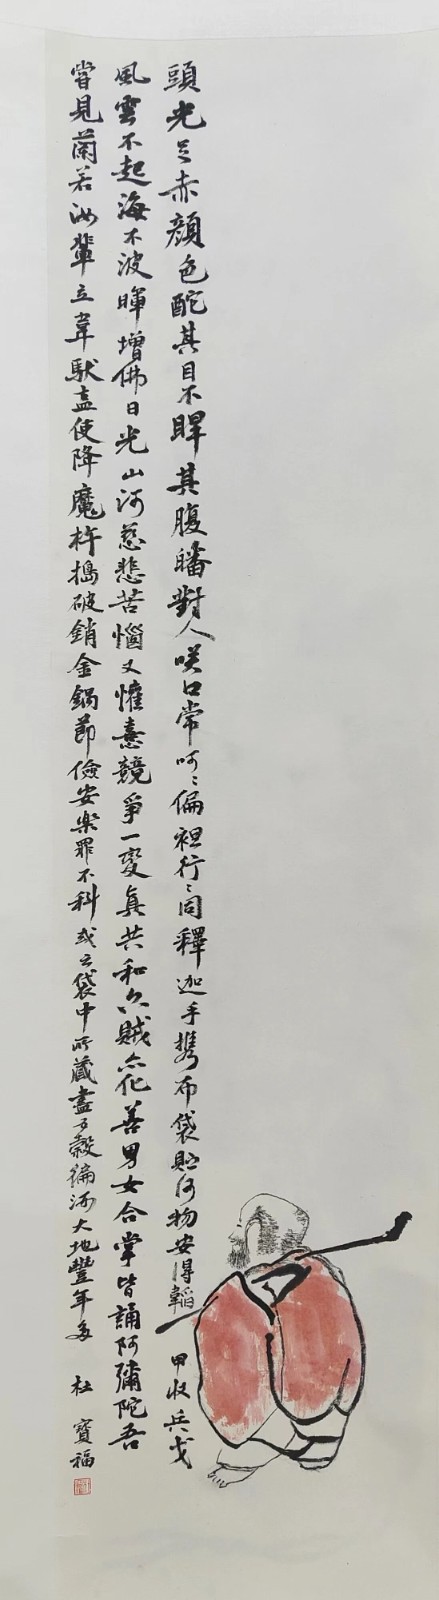 頭光足赤顏色酡其目不睅其腹皤對人咲口常呵呵偏袒行行同釋迦手攜布袋貯何物安得韜甲收兵戈
風雲不起海不波暉增佛日光山河慈悲苦惱又懽憙競爭一變真共和六賊亦化善男女合掌皆誦阿彌陀吾
嘗見蘭若汝輩立韋馱盍使降魔杵搗破銷金鍋節儉安樂罪不科或云袋中所藏盡五穀徧沛大地豐年多
杜寶福